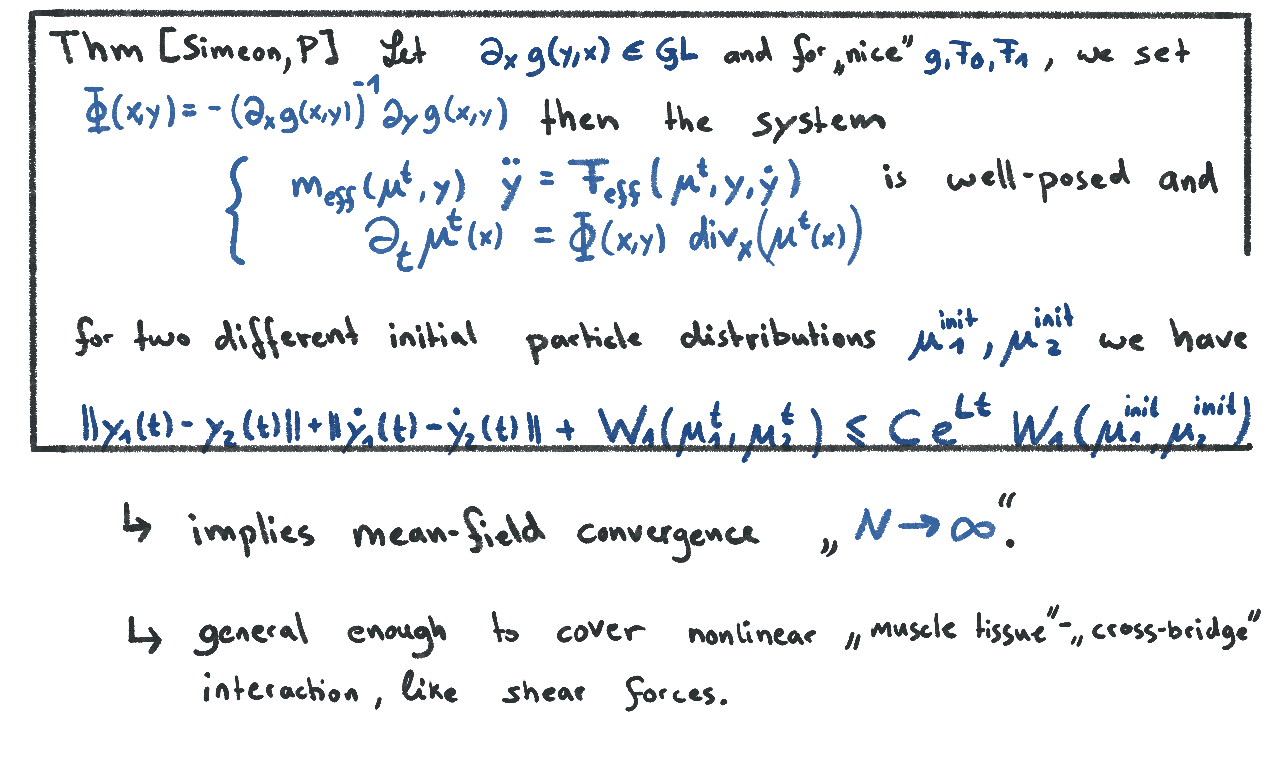 Thm [Simeon, P] Let ∂ₓ g(y,x) ∈ GL and for „nice" g, F₀, F₁, we set
Φ(x,y) = - (∂ₓg(x,y))⁻¹ ∂ᵧ g(x,y) then the system
{ m_eff(μᵗ, y) ÿ = F_eff(μᵗ, y, ẏ) is well-posed and
∂ₜ μᵗ(x) = Φ(x,y) divₓ(μᵗ(x))
for two different initial particle distributions μ₁^init, μ₂^init we have
||y₁(t) - y₂(t)|| + ||ẏ₁(t) - ẏ₂(t)|| + W₁(μ₁ᵗ, μ₂ᵗ) ≤ C e^{Lt} W₁(μ₁^init, μ₂^init)
↳ implies mean-field convergence „N → ∞".
↳ general enough to cover nonlinear „muscle tissue"-„cross-bridge"
interaction, like shear forces.